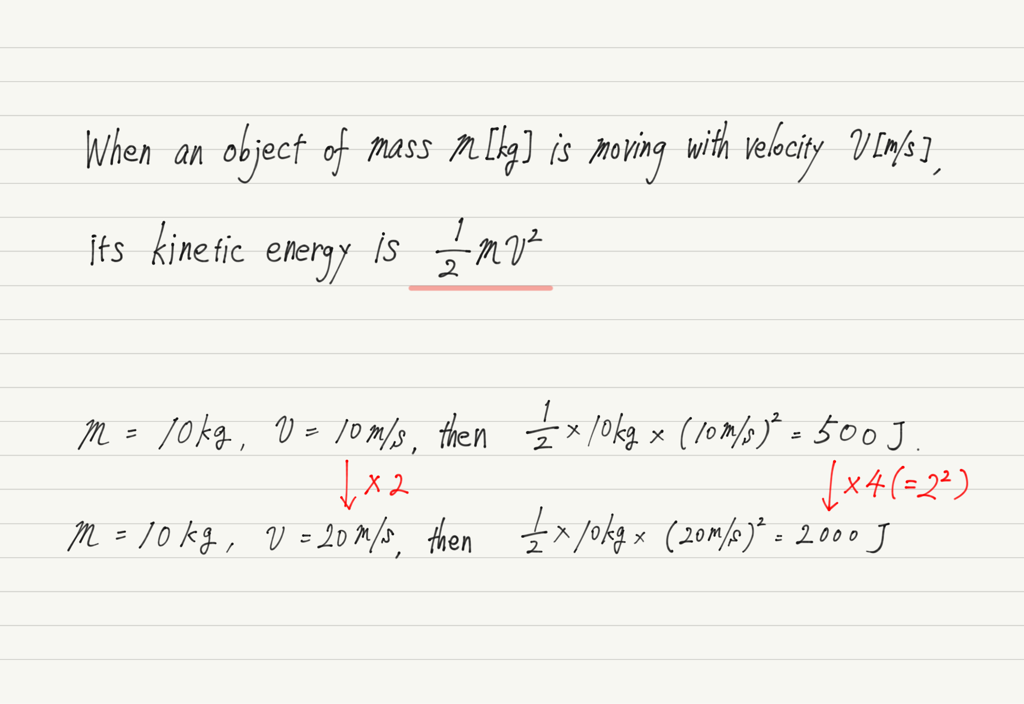 When an object of mass m[kg] is moving with velocity v[m/s],
its kinetic energy is 1/2 mv²
m = 10kg, v = 10m/s, then 1/2 × 10kg × (10m/s)² = 500J.
↓ ×2 ↓ ×4(=2²)
m = 10kg, v = 20m/s, then 1/2 × 10kg × (20m/s)² = 2000J